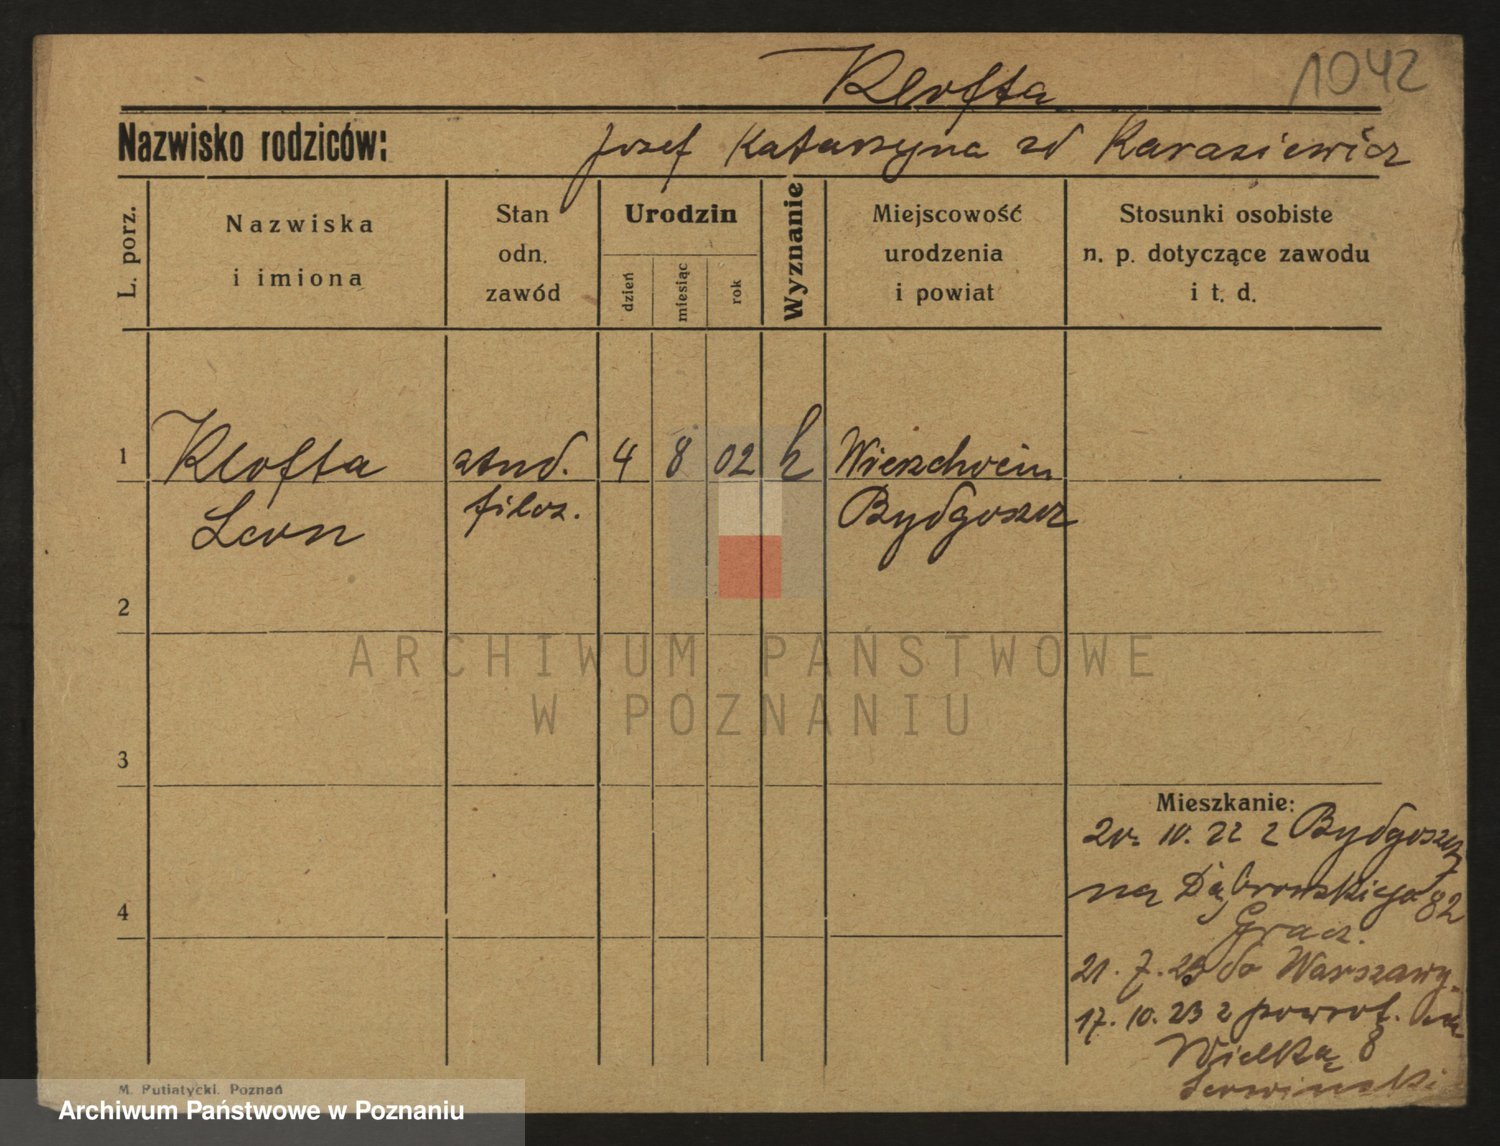 Klofta 1042
Nazwisko rodziców: Josef Katarzyna zd Karasiewicz
L. porz.
Nazwiska
i imiona
Stan
odn.
zawód
Urodzin
dzień
miesiąc
rok
Wyznanie
Miejscowość
urodzenia
i powiat
Stosunki osobiste
n. p. dotyczące zawodu
i t. d.
1 Klofta stud. 4 8 02 k Wierzchocin
Leon filoz. Bydgoszcz
2
ARCHIWUM PAŃSTWOWE
W POZNANIU
3
Mieszkanie:
20. 10. 22 z Bydgoszcz
na Dąbrowskiego 82
4
Gracz.
21. 7. 23 do Warszawy.
17. 10. 23 z powrot. na
Wielką 8
M. Putiatycki. Poznań
Archiwum Państwowe w Poznaniu